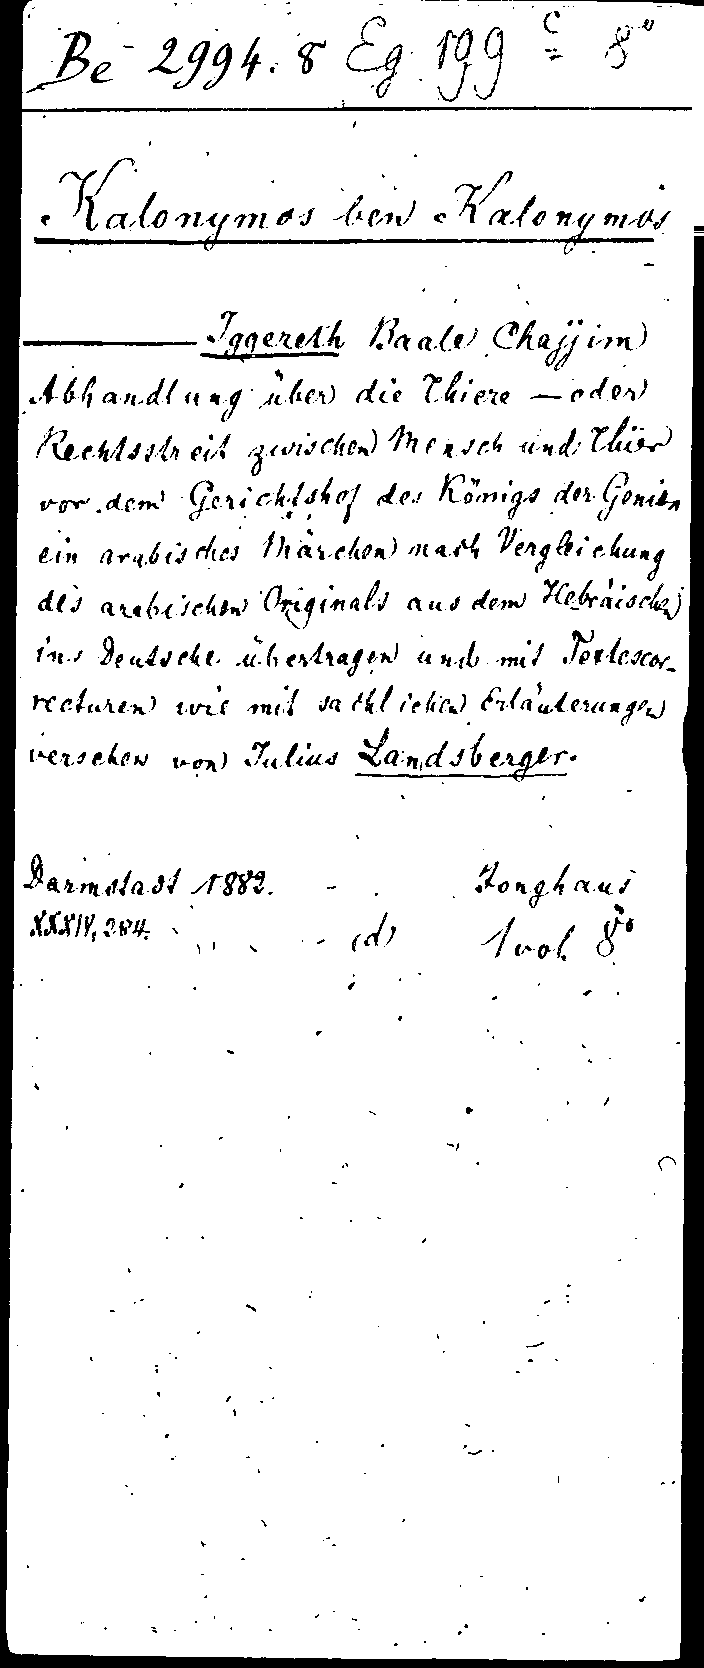 Be 2994. 8 Eg 199 c = 8°
Kalonymos ben Kalonymos
——— Iggereth Baale Chajjim
Abhandlung über die Thiere — oder
Rechtsstreit zwischen Mensch und Thier
vor dem Gerichtshof des Königs der Genien
ein arabisches Märchen nach Vergleichung
des arabischen Originals aus dem Hebräischen
ins Deutsche übertragen und mit Textescor-
recturen wie mit sachlichen Erläuterungen
versehen von Julius Landsberger.
Darmstadt 1882. Jonghaus
XXXIV, 284. (d) 1 vol. 8°